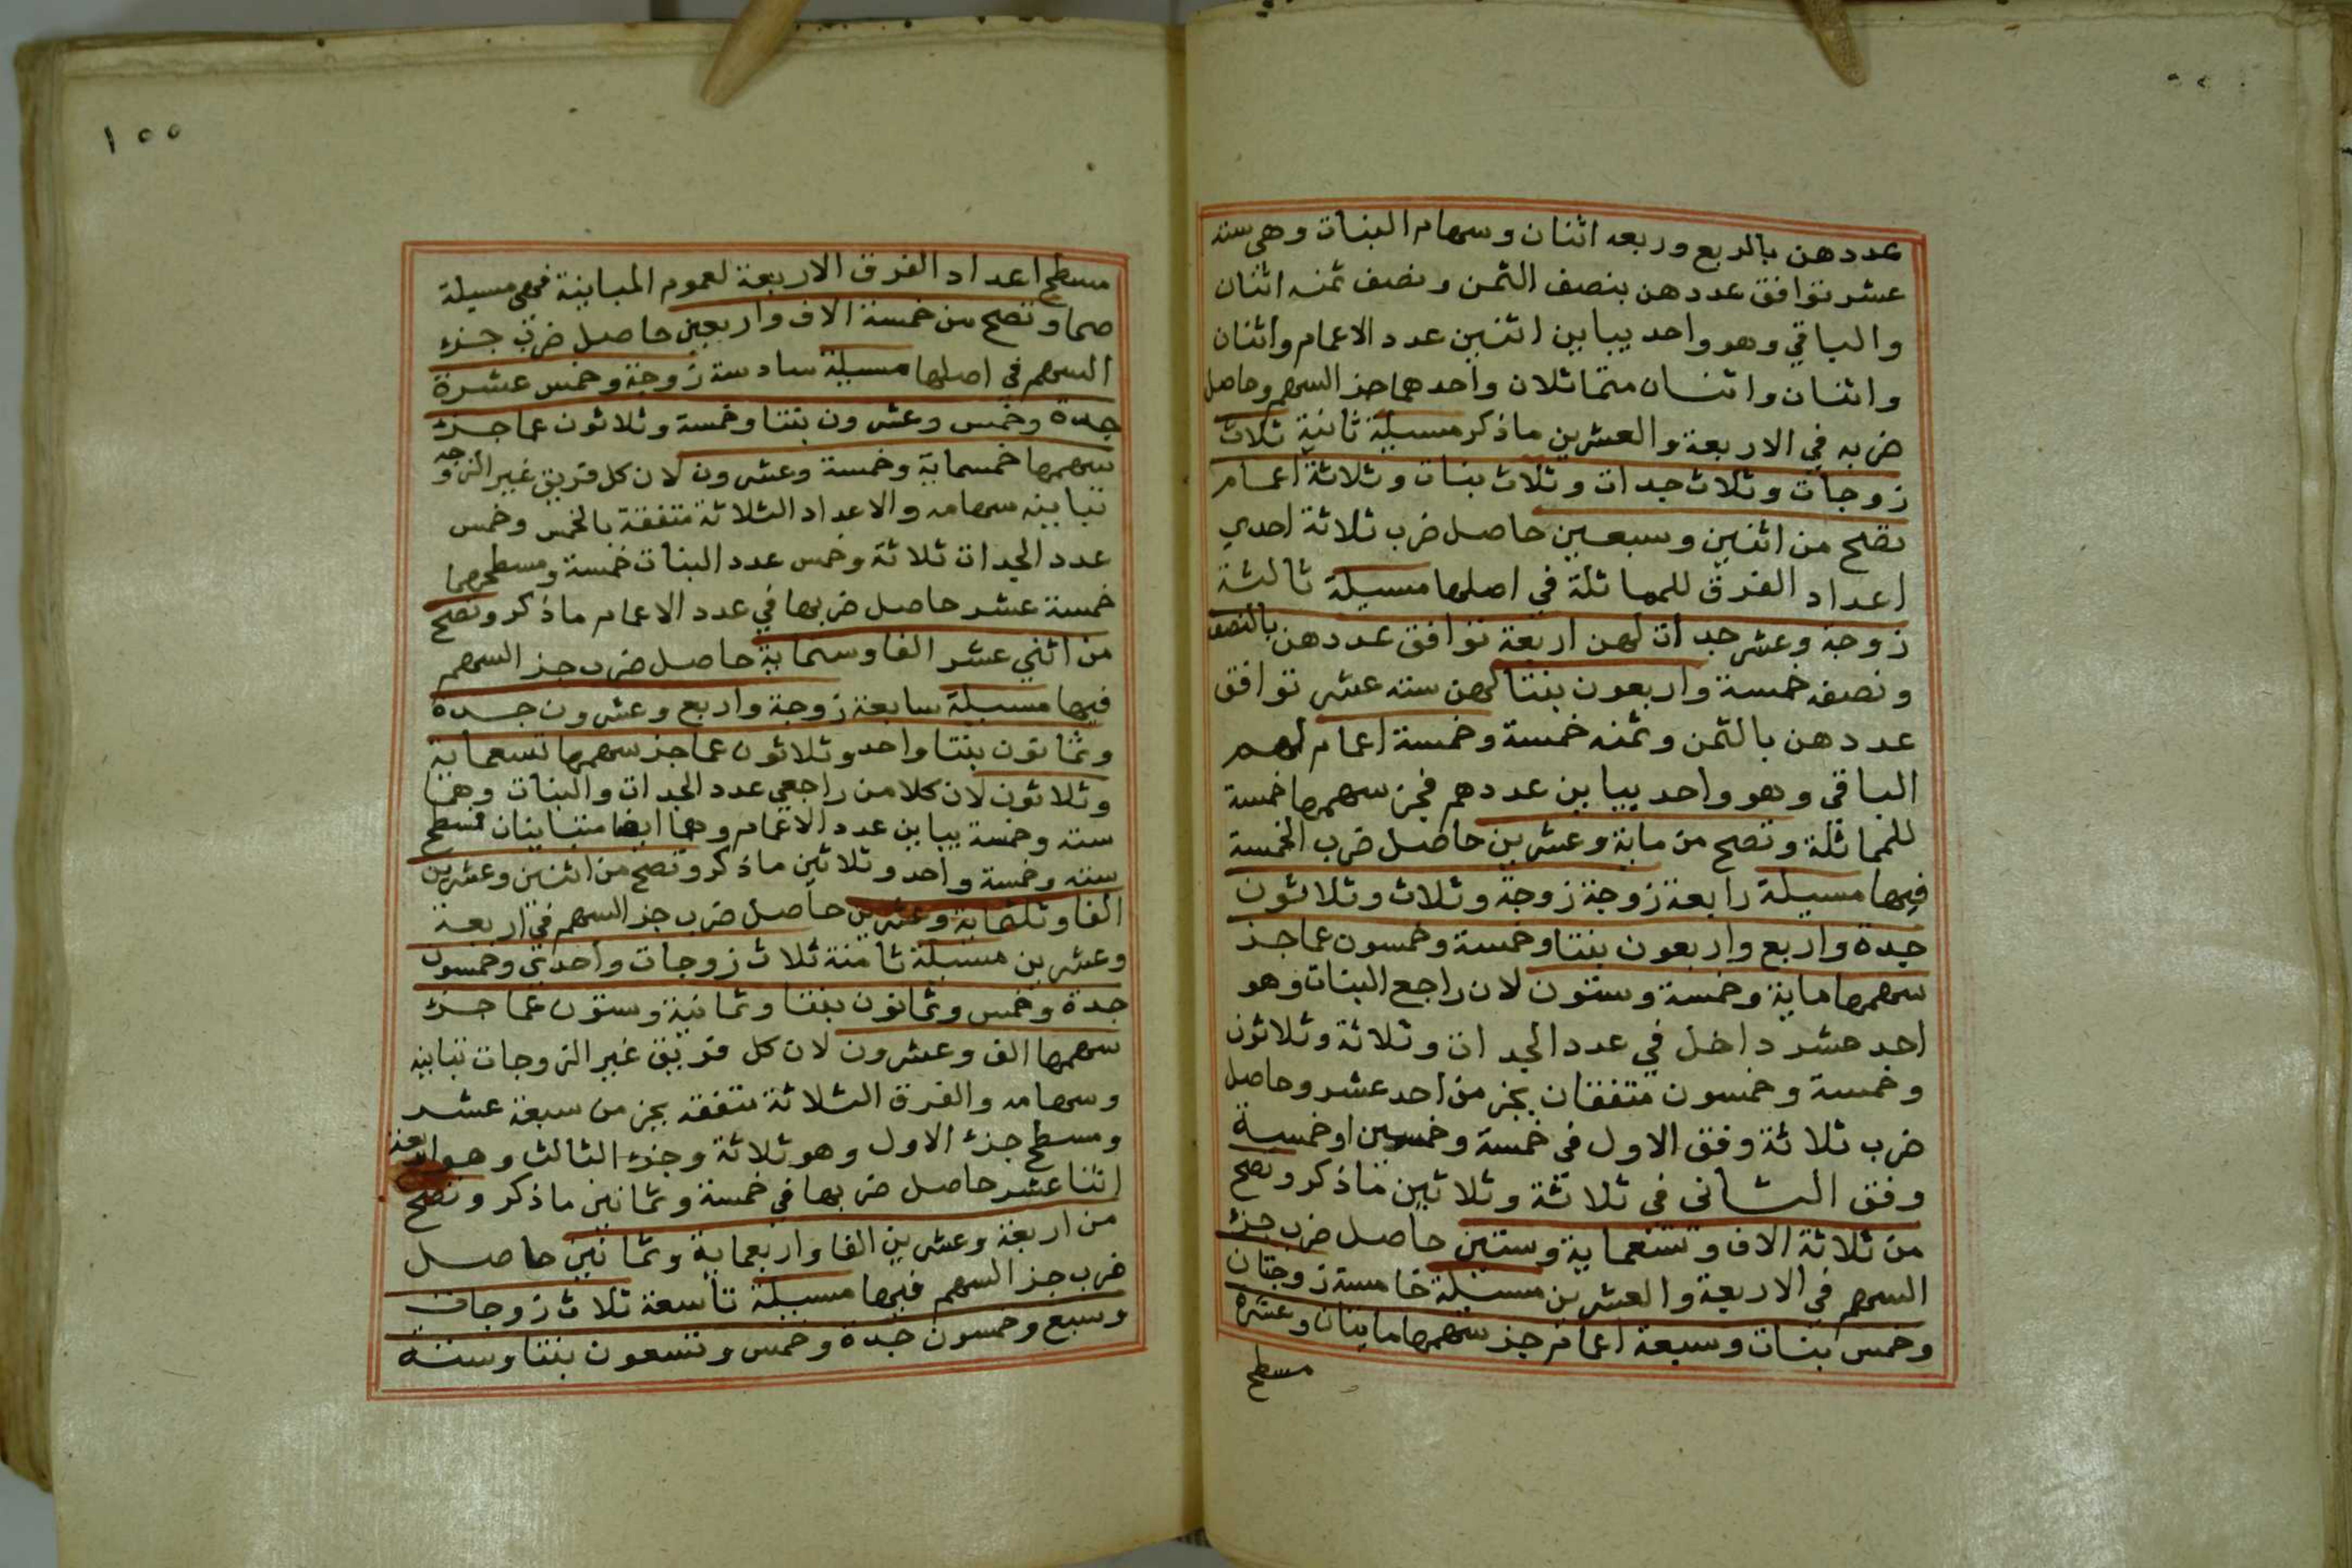 عددهن بالربع وربعه اثنان وسهام البنات وهي ستة
عشر توافق عددهن بنصف الثمن ونصف ثمنه اثنان
والباقي وهو واحد يباين اثنين عدد الاعمام واثنان
واثنان واثنان متماثلان واحدهما جز السهم وحاصل
ضربه في الاربعة والعشرين ماذكر مسيلة ثانية ثلاث
زوجات وثلاث جدات وثلاث بنات وثلاثة اعمام
تصح من اثنين وسبعين حاصل ضرب ثلاثة احدي
اعداد الفرق للمماثلة في اصلها مسيلة ثالثة
زوجة وعشر جدات لهن اربعة توافق عددهن بالنصف
ونصفه خمسة واربعون بنتا لهن ستة عشر توافق
عددهن بالثمن وثمنه خمسة وخمسة اعمام لهم
الباقي وهو واحد يباين عددهم فجز سهمها خمسة
للمماثلة وتصح من ماية وعشرين حاصل ضرب الخمسة
فيها مسيلة رابعة زوجة زوجة وثلاث وثلاثون
جدة واربع واربعون بنتا وخمسة وخمسون عما جز
سهمها ماية وخمسة وستون لان راجع البنات وهو
احد عشر داخل في عدد الجدات وثلاثة وثلاثون
وخمسة وخمسون متفقان بجز من احد عشر وحاصل
ضرب ثلاثة وفق الاول في خمسة وخمسين او خمسة
وفق الثاني في ثلاثة وثلاثين ماذكر وتصح
من ثلاثة الاف وتسعماية وستين حاصل ضرب جزء
السهم في الاربعة والعشرين مسيلة خامسة زوجتان
وخمس بنات وسبعة اعمام جز سهمها مايتان وعشرة
مسطح
١٥٥
مسطح اعداد الفرق الاربعة لعموم المباينة فهي مسيلة
صما وتصح من خمسة الاف واربعين حاصل ضرب جزء
السهم في اصلها مسيلة سادسة زوجة وخمس عشرة
جدة وخمس وعشرون بنتا وخمسة وثلاثون عما جزء
سهمها خمسماية وخمسة وعشرون لان كل فريق غير الزوجة
تباينه سهامه والاعداد الثلاثة متفقة بالخمس وخمس
عدد الجدات ثلاثة وخمس عدد البنات خمسة ومسطحهما
خمسة عشر حاصل ضربها في عدد الاعمام ماذكر وتصح
من اثني عشر الفا وستماية حاصل ضرب جز السهم
فيها مسيلة سابعة زوجة واربع وعشرون جدة
وثمانون بنتا واحد وثلاثون عما جز سهمها تسعماية
وثلاثون لان كلا من راجعي عدد الجدات والبنات وهما
ستة وخمسة يباين عدد الاعمام وهما ايضا متباينان فمسطح
ستة وخمسة واحد وثلاثين ماذكر وتصح من اثنين وعشرين
الفا وثلثماية وعشرين حاصل ضرب جز السهم في اربعة
وعشرين مسيلة ثامنة ثلاث زوجات واحدي وخمسون
جدة وخمس وثمانون بنتا وثمانية وستون عما جزء
سهمها الف وعشرون لان كل فريق غير الزوجات تباينه
وسهامه والفرق الثلاثة متفقه بجز من سبعة عشر
ومسطح جزء الاول وهو ثلاثة وجزء الثالث وهو اربعة
اثنا عشر حاصل ضربها في خمسة وثمانين ماذكر وتصح
من اربعة وعشرين الفا واربعماية وثمانين حاصل
ضرب جز السهم فيها مسيلة تاسعة ثلاث زوجات
وسبع وخمسون جدة وخمس وتسعون بنتا وستة